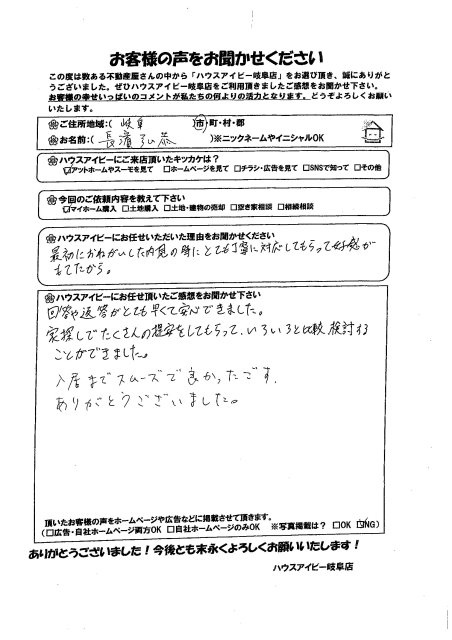 お客様の声をお聞かせください
この度は数ある不動産屋さんの中から「ハウスアイビー岐阜店」をお選び頂き、誠にありがと
うございました。ぜひハウスアイビー岐阜店をご利用頂きましたご感想をお聞かせ下さい。
お客様の幸せいっぱいのコメントが私たちの何よりの活力となります。どうぞよろしくお願い
いたします。
ご住所地域：（ 岐阜 ）市・町・村・郡
お名前：（ ）※ニックネームやイニシャルOK
ハウスアイビーにご来店頂いたキッカケは？
☑アットホームやスーモを見て □ホームページを見て □チラシ・広告を見て □SNSで知って □その他
今回のご依頼内容を教えて下さい
☑マイホーム購入 □土地購入 □土地・建物の売却 □空き家相談 □相続相談
ハウスアイビーにお任せいただいた理由をお聞かせください
最初におねがいした内見の時にとても丁寧に対応してもらって好感が
もてたから。
ハウスアイビーにお任せ頂いたご感想をお聞かせ下さい
回答や返答がとても早くて安心できました。
家探しでたくさんの提案をしてもらって、いろいろと比較、検討する
ことができました。
入居までスムーズで良かったです。
ありがとうございました。
頂いたお客様の声をホームページや広告などに掲載させて頂きます。
（□広告・自社ホームページ両方OK □自社ホームページのみOK ※写真掲載は？ □OK ☑NG）
ありがとうございました！今後とも末永くよろしくお願いいたします！
ハウスアイビー岐阜店